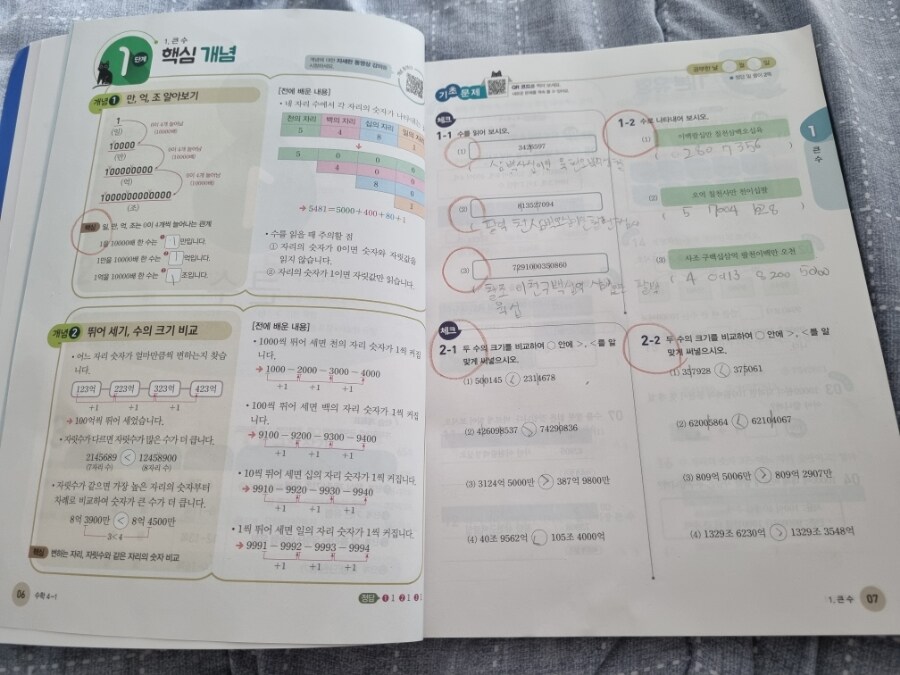 1. 큰 수
1 단계
핵심 개념
개념 1 만, 억, 조 알아보기
1
(일)
10000
(만)
100000000
(억)
1000000000000
(조)
핵심 일, 만, 억, 조는 0이 4개씩 늘어나는 관계
1을 10000배 한 수는 1 만입니다.
1만을 10000배 한 수는 1 억입니다.
1억을 10000배 한 수는 1 조입니다.
[전에 배운 내용]
• 네 자리 수에서 각 자리의 숫자가 나타내는
천의 자리 백의 자리 십의 자리 일의 자리
5 4 8 1
5 0 0 0
4 0 0
8 0
1
→ 5481=5000+400+80+1
• 수를 읽을 때 주의할 점
① 자리의 숫자가 0이면 숫자와 자릿값을
읽지 않습니다.
② 자리의 숫자가 1이면 자릿값만 읽습니다.
개념 2 뛰어 세기, 수의 크기 비교
• 어느 자리 숫자가 얼마만큼씩 변하는지 찾습
니다.
123억 223억 323억 423억
+1 +1 +1
→ 100억씩 뛰어 세었습니다.
• 자릿수가 다르면 자릿수가 많은 수가 더 큽니다.
2145689 < 12458900
(7자리 수) (8자리 수)
• 자릿수가 같으면 가장 높은 자리의 숫자부터
차례로 비교하여 숫자가 큰 수가 더 큽니다.
8억 3900만 < 8억 4500만
3<4
핵심 변하는 자리, 자릿수와 같은 자리의 숫자 비교
[전에 배운 내용]
• 1000씩 뛰어 세면 천의 자리 숫자가 1씩 커집
니다.
→ 1000－2000－3000－4000
+1 +1 +1
• 100씩 뛰어 세면 백의 자리 숫자가 1씩 커집
니다.
→ 9100－9200－9300－9400
+1 +1 +1
• 10씩 뛰어 세면 십의 자리 숫자가 1씩 커집니다.
→ 9910－9920－9930－9940
+1 +1 +1
• 1씩 뛰어 세면 일의 자리 숫자가 1씩 커집니다.
→ 9991－9992－9993－9994
+1 +1 +1
06 수학 4-1
정답 ❶ 1 ❷ 1 ❸ 1
기초 문제
공부한 날 월 일
체크
1-1 수를 읽어 보시오.
(1) 3426597
(2) 813527094
(3)
1-2 수로 나타내어 보시오.
(1) 이백육십만 칠천삼백오십육
( 260 7356 )
(2) 오억 칠천사만 천이십팔
( 5 7004 1028 )
(3) 사조 구백십삼억 팔천이백만 오천
( 4 0913 8200 5000 )
체크
2-1 두 수의 크기를 비교하여 ○ 안에 >, <를 알
맞게 써넣으시오.
(1) 500145 < 2314678
(2) 426098537 > 74290836
(3) 3124억 5000만 > 387억 9800만
(4) 40조 9562억 < 105조 4000억
2-2 두 수의 크기를 비교하여 ○ 안에 >, <를 알
맞게 써넣으시오.
(1) 357928 < 375061
(2) 62005864 < 62104067
(3) 809억 5006만 > 809억 2907만
(4) 1329조 6230억 > 1329조 3548억
1
큰 수
1. 큰 수 07